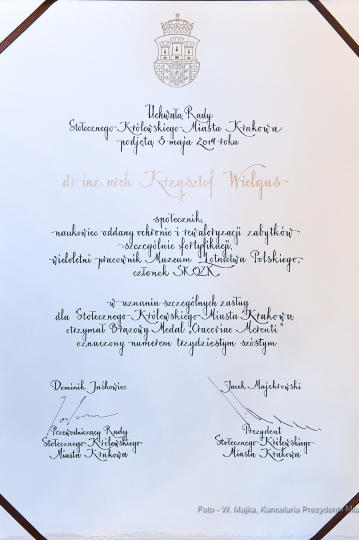 Uchwałą Rady
Stołecznego Królewskiego Miasta Krakowa
podjętą 8 maja 2019 roku
dr inż. arch. Krzysztof Wielgus
społecznik,
naukowiec oddany ochronie i rewaloryzacji zabytków
szczególnie fortyfikacji,
wieloletni pracownik Muzeum Lotnictwa Polskiego,
członek SKOZK
w uznaniu szczególnych zasług
dla Stołecznego Królewskiego Miasta Krakowa
otrzymał Brązowy Medal „Cracoviae Merenti"
oznaczony numerem trzydziestym szóstym
Dominik Jaśkowiec
Przewodniczący Rady
Stołecznego Królewskiego
Miasta Krakowa
Jacek Majchrowski
Prezydent
Stołecznego Królewskiego
Miasta Krakowa
Foto - W. Majka, Kancelaria Prezydenta Mia